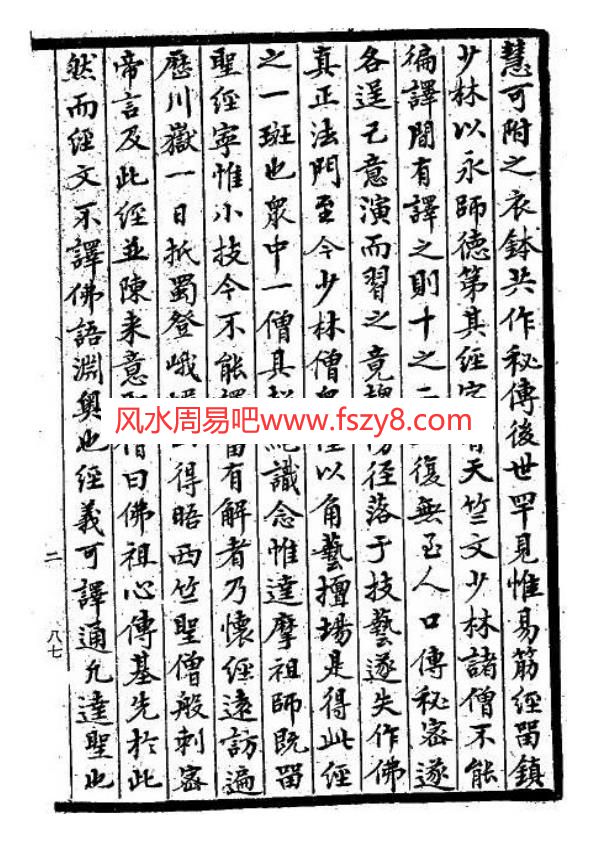 慧可附之衣鉢共作秘傳後世罕見惟易筋經留鎮
少林以永師德第其經字皆天竺文少林諸僧不能
徧譯間有譯之則十之二復無至人口傳秘密遂
各逞己意演而習之竟徑落于技藝遂失作佛
真正法門至今少林僧眾以角藝擅場是得此經
之一斑也眾中一僧具超絕識念惟達摩祖師既留
聖經寧惟小技今不能譯留有解者乃懷經遠訪遍
歷川嶽一日抵蜀登峨得晤西竺聖僧般剌密
帝言及此經並陳來意聖僧曰佛祖心傳基先於此
然而經文不譯佛語淵奧也經義可譯通凡達聖也
二
八七
风水周易吧www.fszy8.com